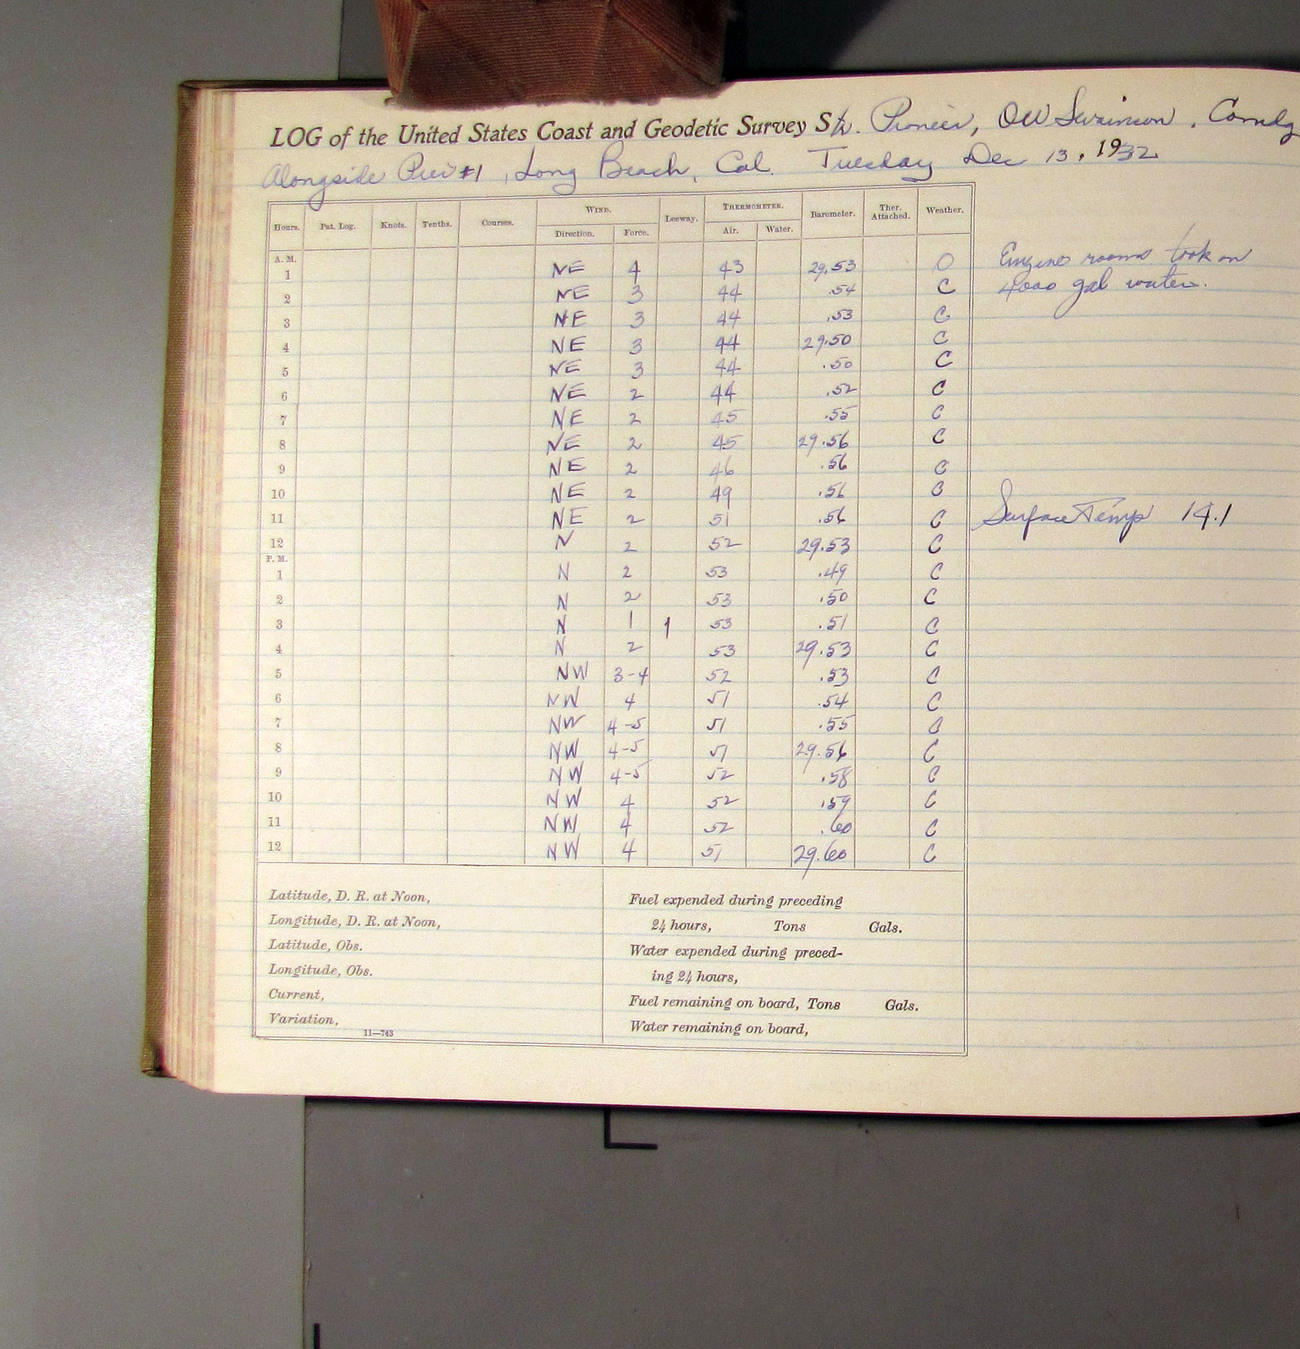 LOG of the United States Coast and Geodetic Survey Str. Pioneer, OW Swainson, Comdg
Alongside Pier #1, Long Beach, Cal. Tuesday Dec 13, 1932
Hours. Pat. Log. Knots. Tenths. Courses. WIND. Leeway. THERMOMETER. Barometer. Ther. Attached. Weather.
Direction. Force. Air. Water.
A. M.
1 NE 4 43 29.53 O
Engine rooms took on
2 NE 3 44 .54 C
4000 gal water.
3 NE 3 44 .53 C
4 NE 3 44 29.50 C
5 NE 3 44 .50 C
6 NE 2 44 .52 C
7 NE 2 45 .55 C
8 NE 2 45 29.56 C
9 NE 2 46 .56 C
10 NE 2 49 .56 C
11 NE 2 51 .56 C
Surface Temp 14.1
12 N 2 52 29.53 C
P. M.
1 N 2 53 .49 C
2 N 2 53 .50 C
3 N 1 1 53 .51 C
4 N 2 53 29.53 C
5 NW 3-4 52 .53 C
6 NW 4 51 .54 C
7 NW 4-5 51 .55 C
8 NW 4-5 51 29.56 C
9 NW 4-5 52 .58 C
10 NW 4 52 .59 C
11 NW 4 52 .60 C
12 NW 4 51 29.60 C
Latitude, D. R. at Noon,
Longitude, D. R. at Noon,
Latitude, Obs.
Longitude, Obs.
Current,
Variation,
11—743
Fuel expended during preceding
24 hours, Tons Gals.
Water expended during preced-
ing 24 hours,
Fuel remaining on board, Tons Gals.
Water remaining on board,